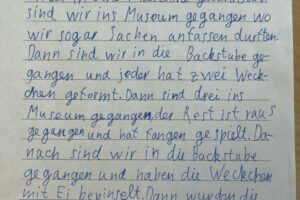 sind wir ins Museum gegangen wo
wir sogar Sachen anfassen durften.
Dann sind wir in die Backstube ge-
gangen und jeder hat zwei Weck-
chen geformt. Dann sind drei ins
Museum gegangen, der Rest ist raus
gegangen und hat fangen gespielt. Da-
nach sind wir in die Backstube
gegangen und haben die Weckchen
mit Ei bepinselt. Dann wurden die